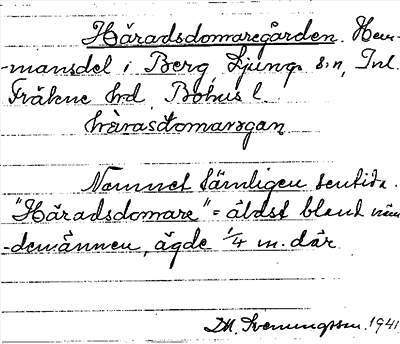 Häradsdomaregården. Hem-
-mansdel i Berg, Ljungs s:n, Inl.
Fräkne hd, Bohus l
hàrasdomarəgan
Namnet tämligen sentida.
"Häradsdomare" = äldst bland näm
-demännen, ägde 1/4 m. där
M. Svenungsson. 1941